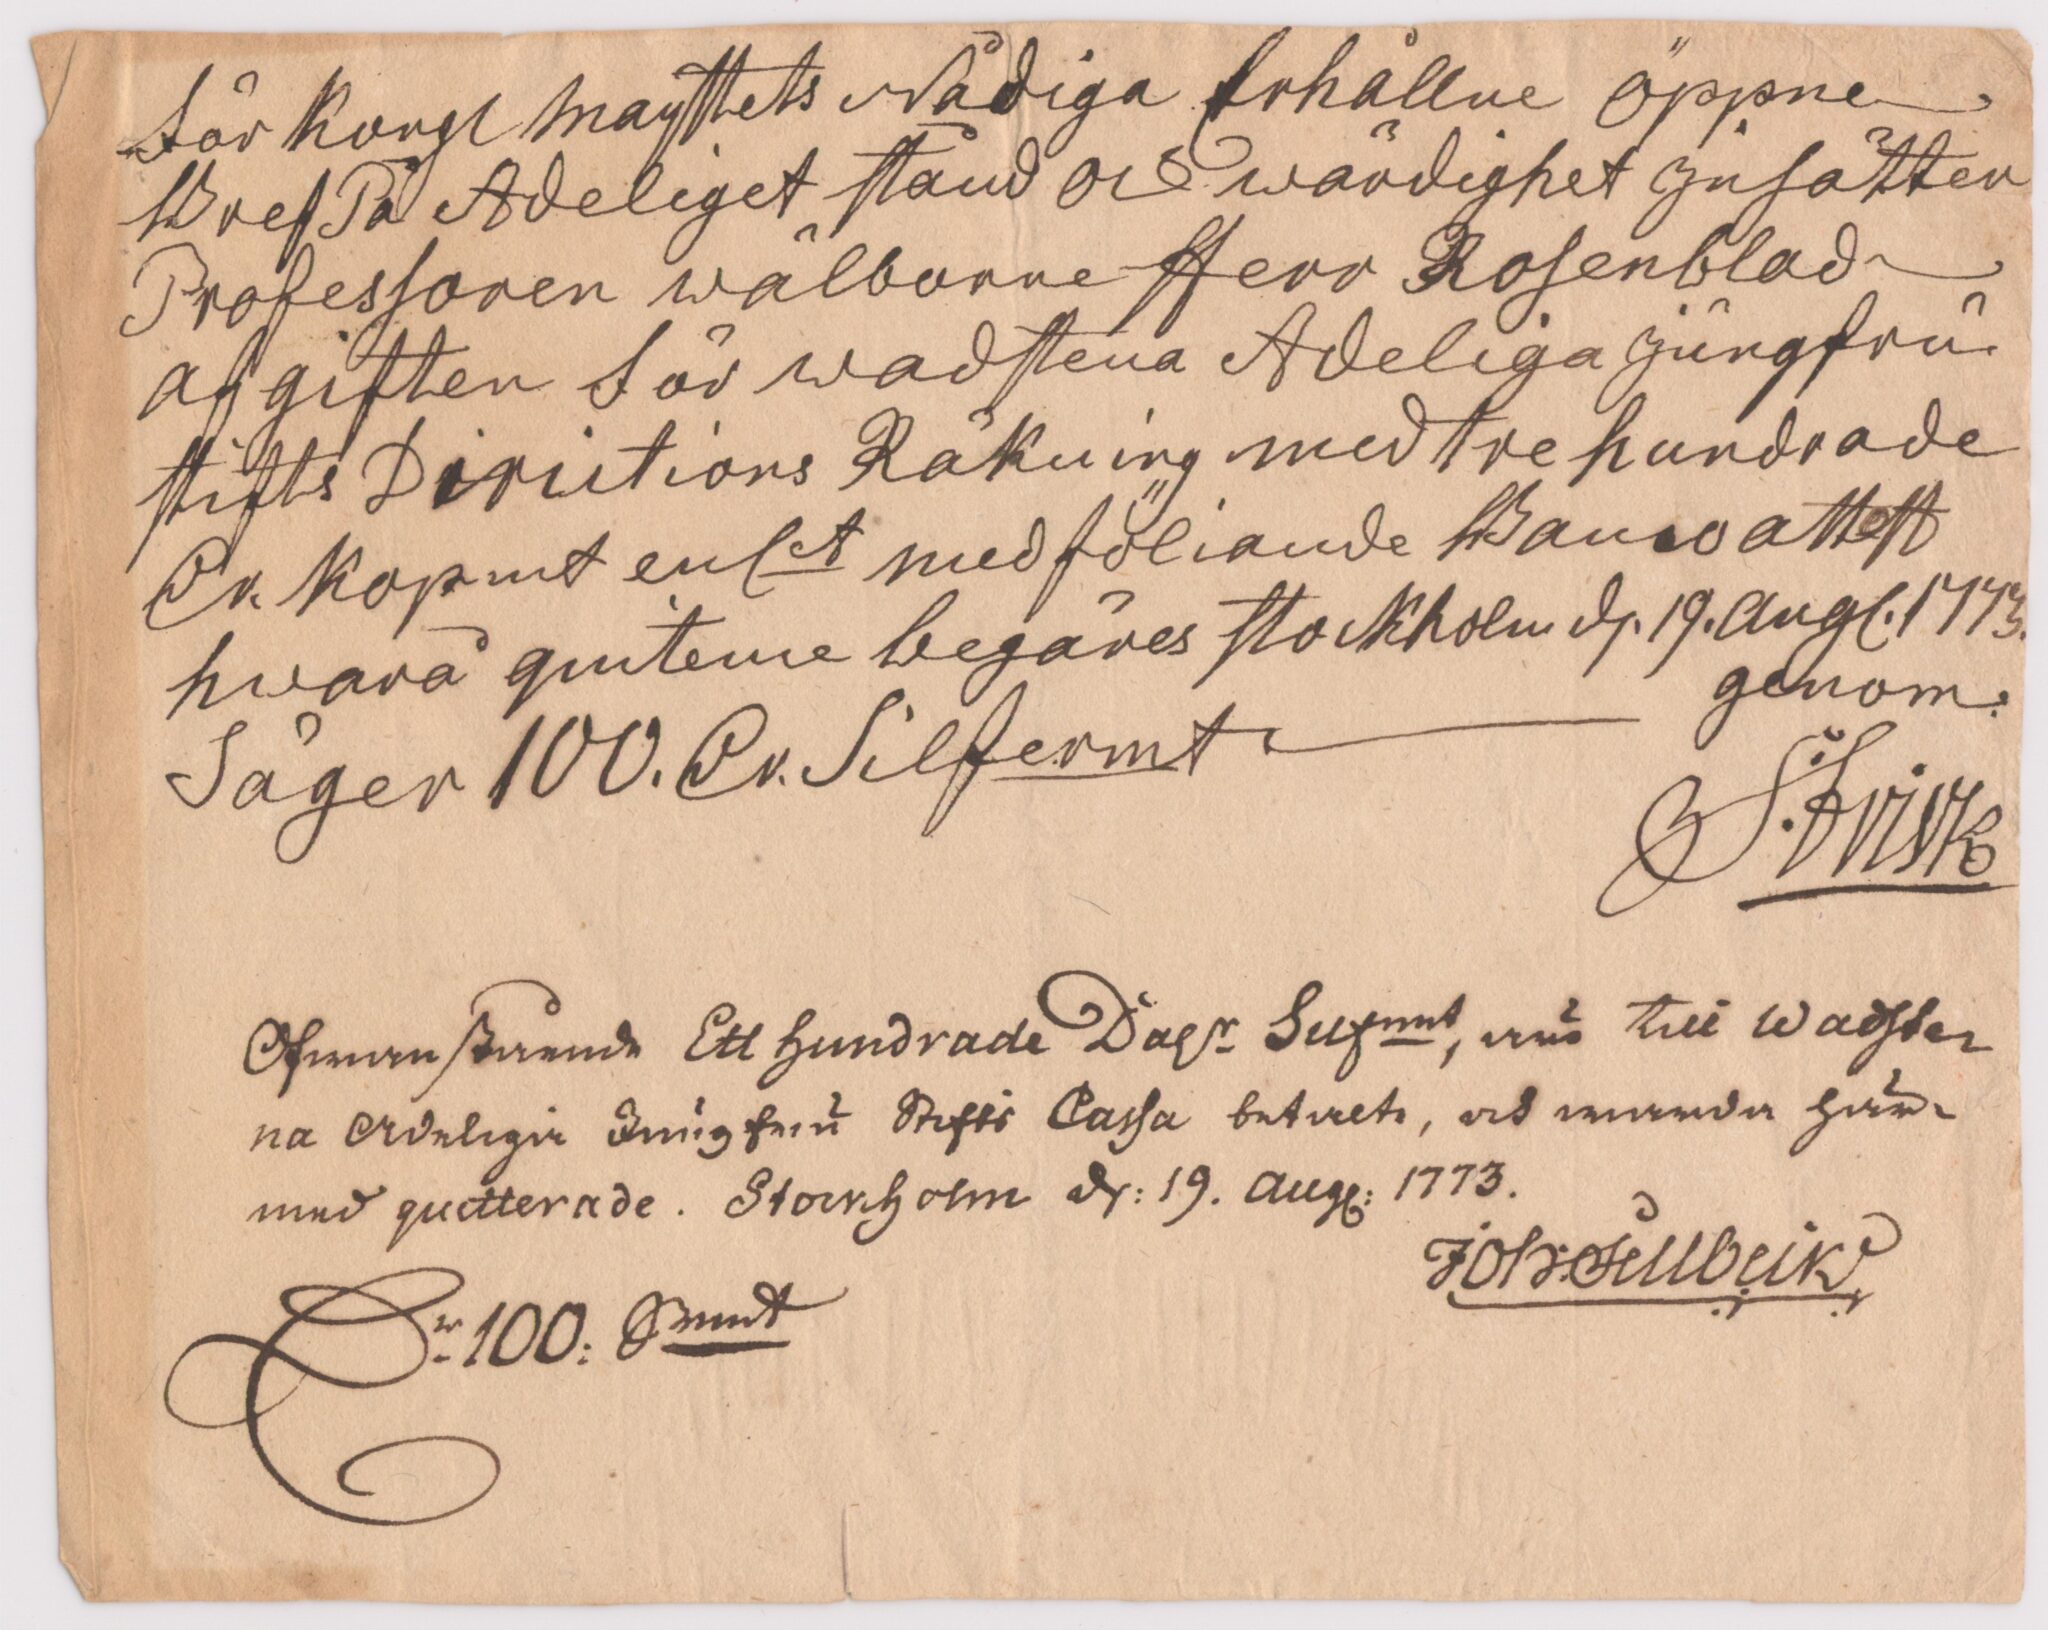 för Kongl Mayttets Nådiga Erhållne öppne
Bref På Adeliget stånd och wärdighet Jnsätter
Professoren wälborne Herr Rosenblad
afgiften för wadstena Adeliga jüngfrü
stifts Dirictions Räkning med tre hundrade
Dr. Kopmt enl:t medföljande Banco attest
hwarå quitence begäres stockholm d. 19. Augl. 1773.
genom.
Säger 100. Dr. Silfermt
S. Frisk
Ofwanstående Ett hundrade Dalr Silfmt, äro till Wadste-
na Adeliga Jungfru Stifts Cassa betalte, och warda här-
med quitterade. Stockholm d: 19. Aug: 1773.
Joh: Fellbeik
Dr 100: Smt